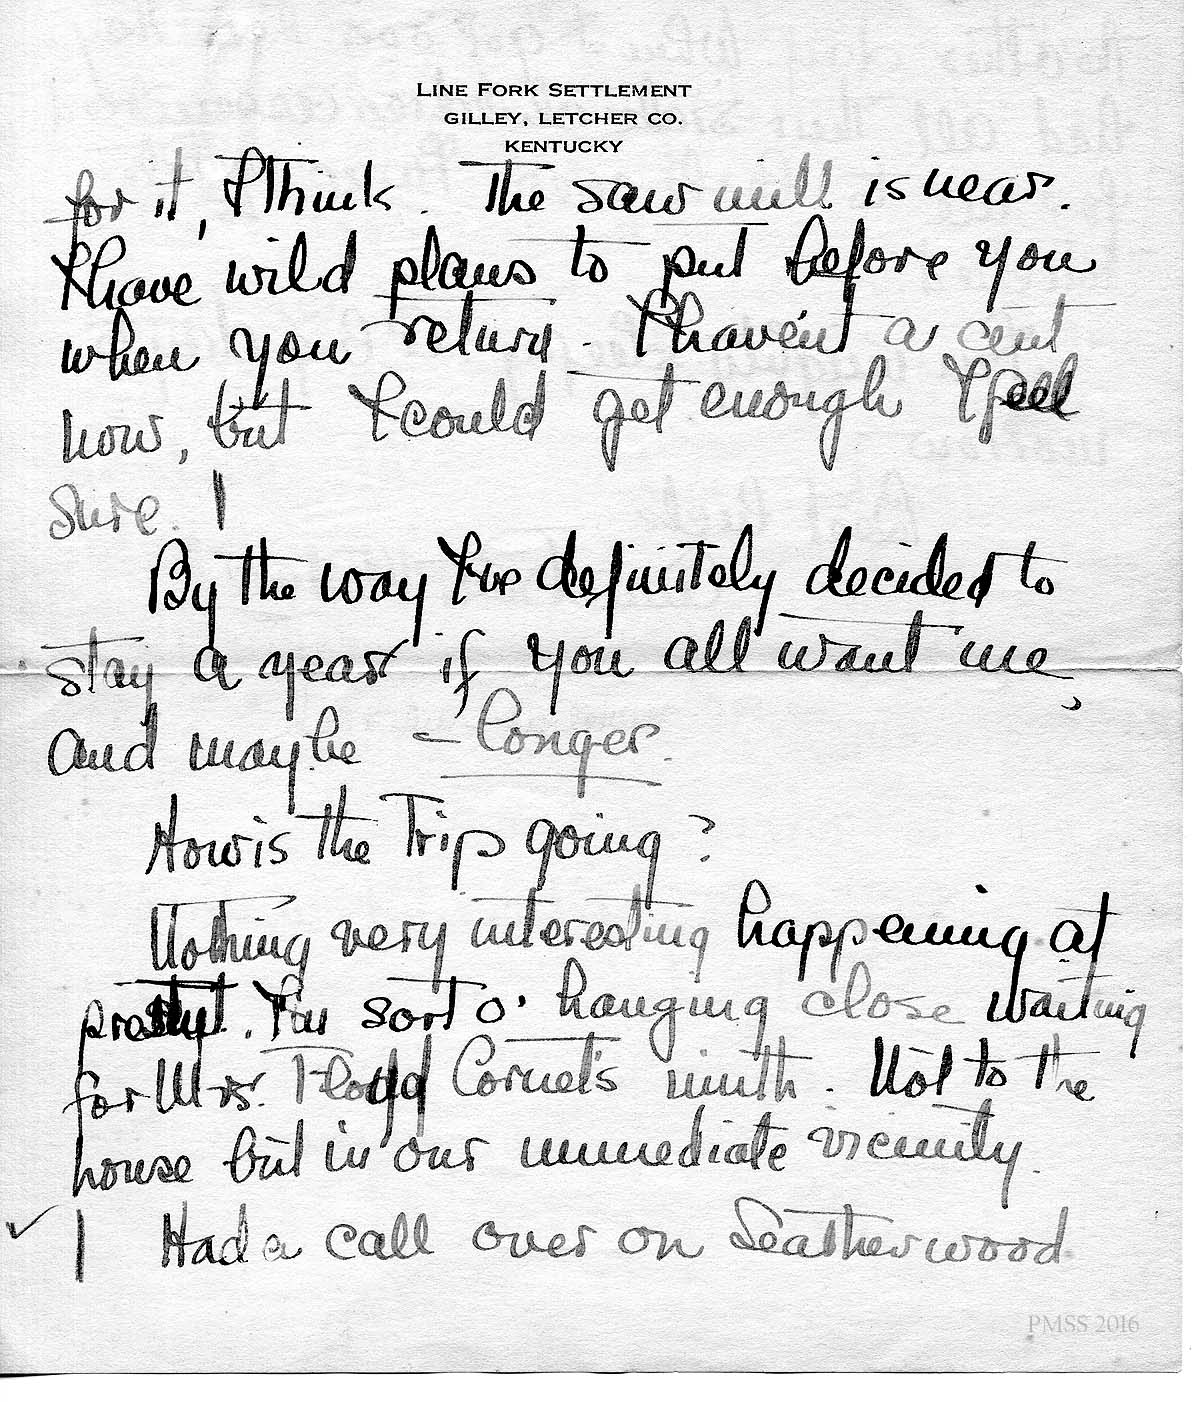 LINE FORK SETTLEMENT
GILLEY, LETCHER CO.
KENTUCKY
for it, I think. The saw mill is near.
I have wild plans to put before you
when you return. I haven't a cent
now, but I could get enough I feel
sure.
By the way I've definitely decided to
stay a year if you all want me,
and maybe - longer.
How is the Trip going?
Nothing very interesting happening at
present. I'm sort o' hanging close waiting
for Mrs. Floyd Cornet's ninth. Not to the
house but in our immediate vicinity.
Had a call over on Leatherwood
PMSS 2016